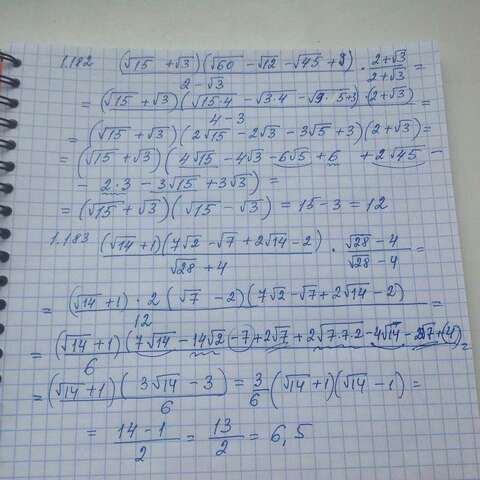 1.182 (√15 + √3)(√60 − √12 − √45 + 3) / (2 − √3) · (2+√3)/(2+√3) =
= (√15 + √3)(√15·4 − √3·4 − √9·5+3)(2+√3) / (4−3) =
= (√15 + √3)(2√15 − 2√3 − 3√5 + 3)(2+√3) =
= (√15 + √3)(4√15 − 4√3 − 6√5 + 6 + 2√45 −
− 2·3 − 3√15 + 3√3) =
= (√15 + √3)(√15 − √3) = 15 − 3 = 12
1.183 (√14 + 1)(7√2 − √7 + 2√14 − 2) / (√28 + 4) · (√28 − 4)/(√28 − 4) =
= (√14 + 1) · 2(√7 − 2)(7√2 − √7 + 2√14 − 2) / 12 =
= (√14 + 1)(7√14 − 14√2 − 7 + 2√7 + 2√7·7·2 − 4√14 − 2√7 + 4) / 6 =
= (√14 + 1)(3√14 − 3) / 6 = 3/6 (√14 + 1)(√14 − 1) =
= (14 − 1)/2 = 13/2 = 6,5